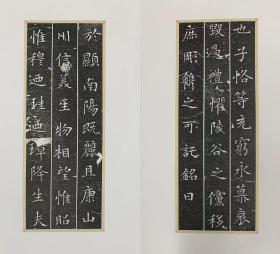 也子恪等充窮永慕哀
毀過禮懼陵谷之儻移
庶彫鐫之可託銘曰
於顯南陽既麗且康山
川信美人物相望惟昭
惟穆迺珪迺璋降生夫